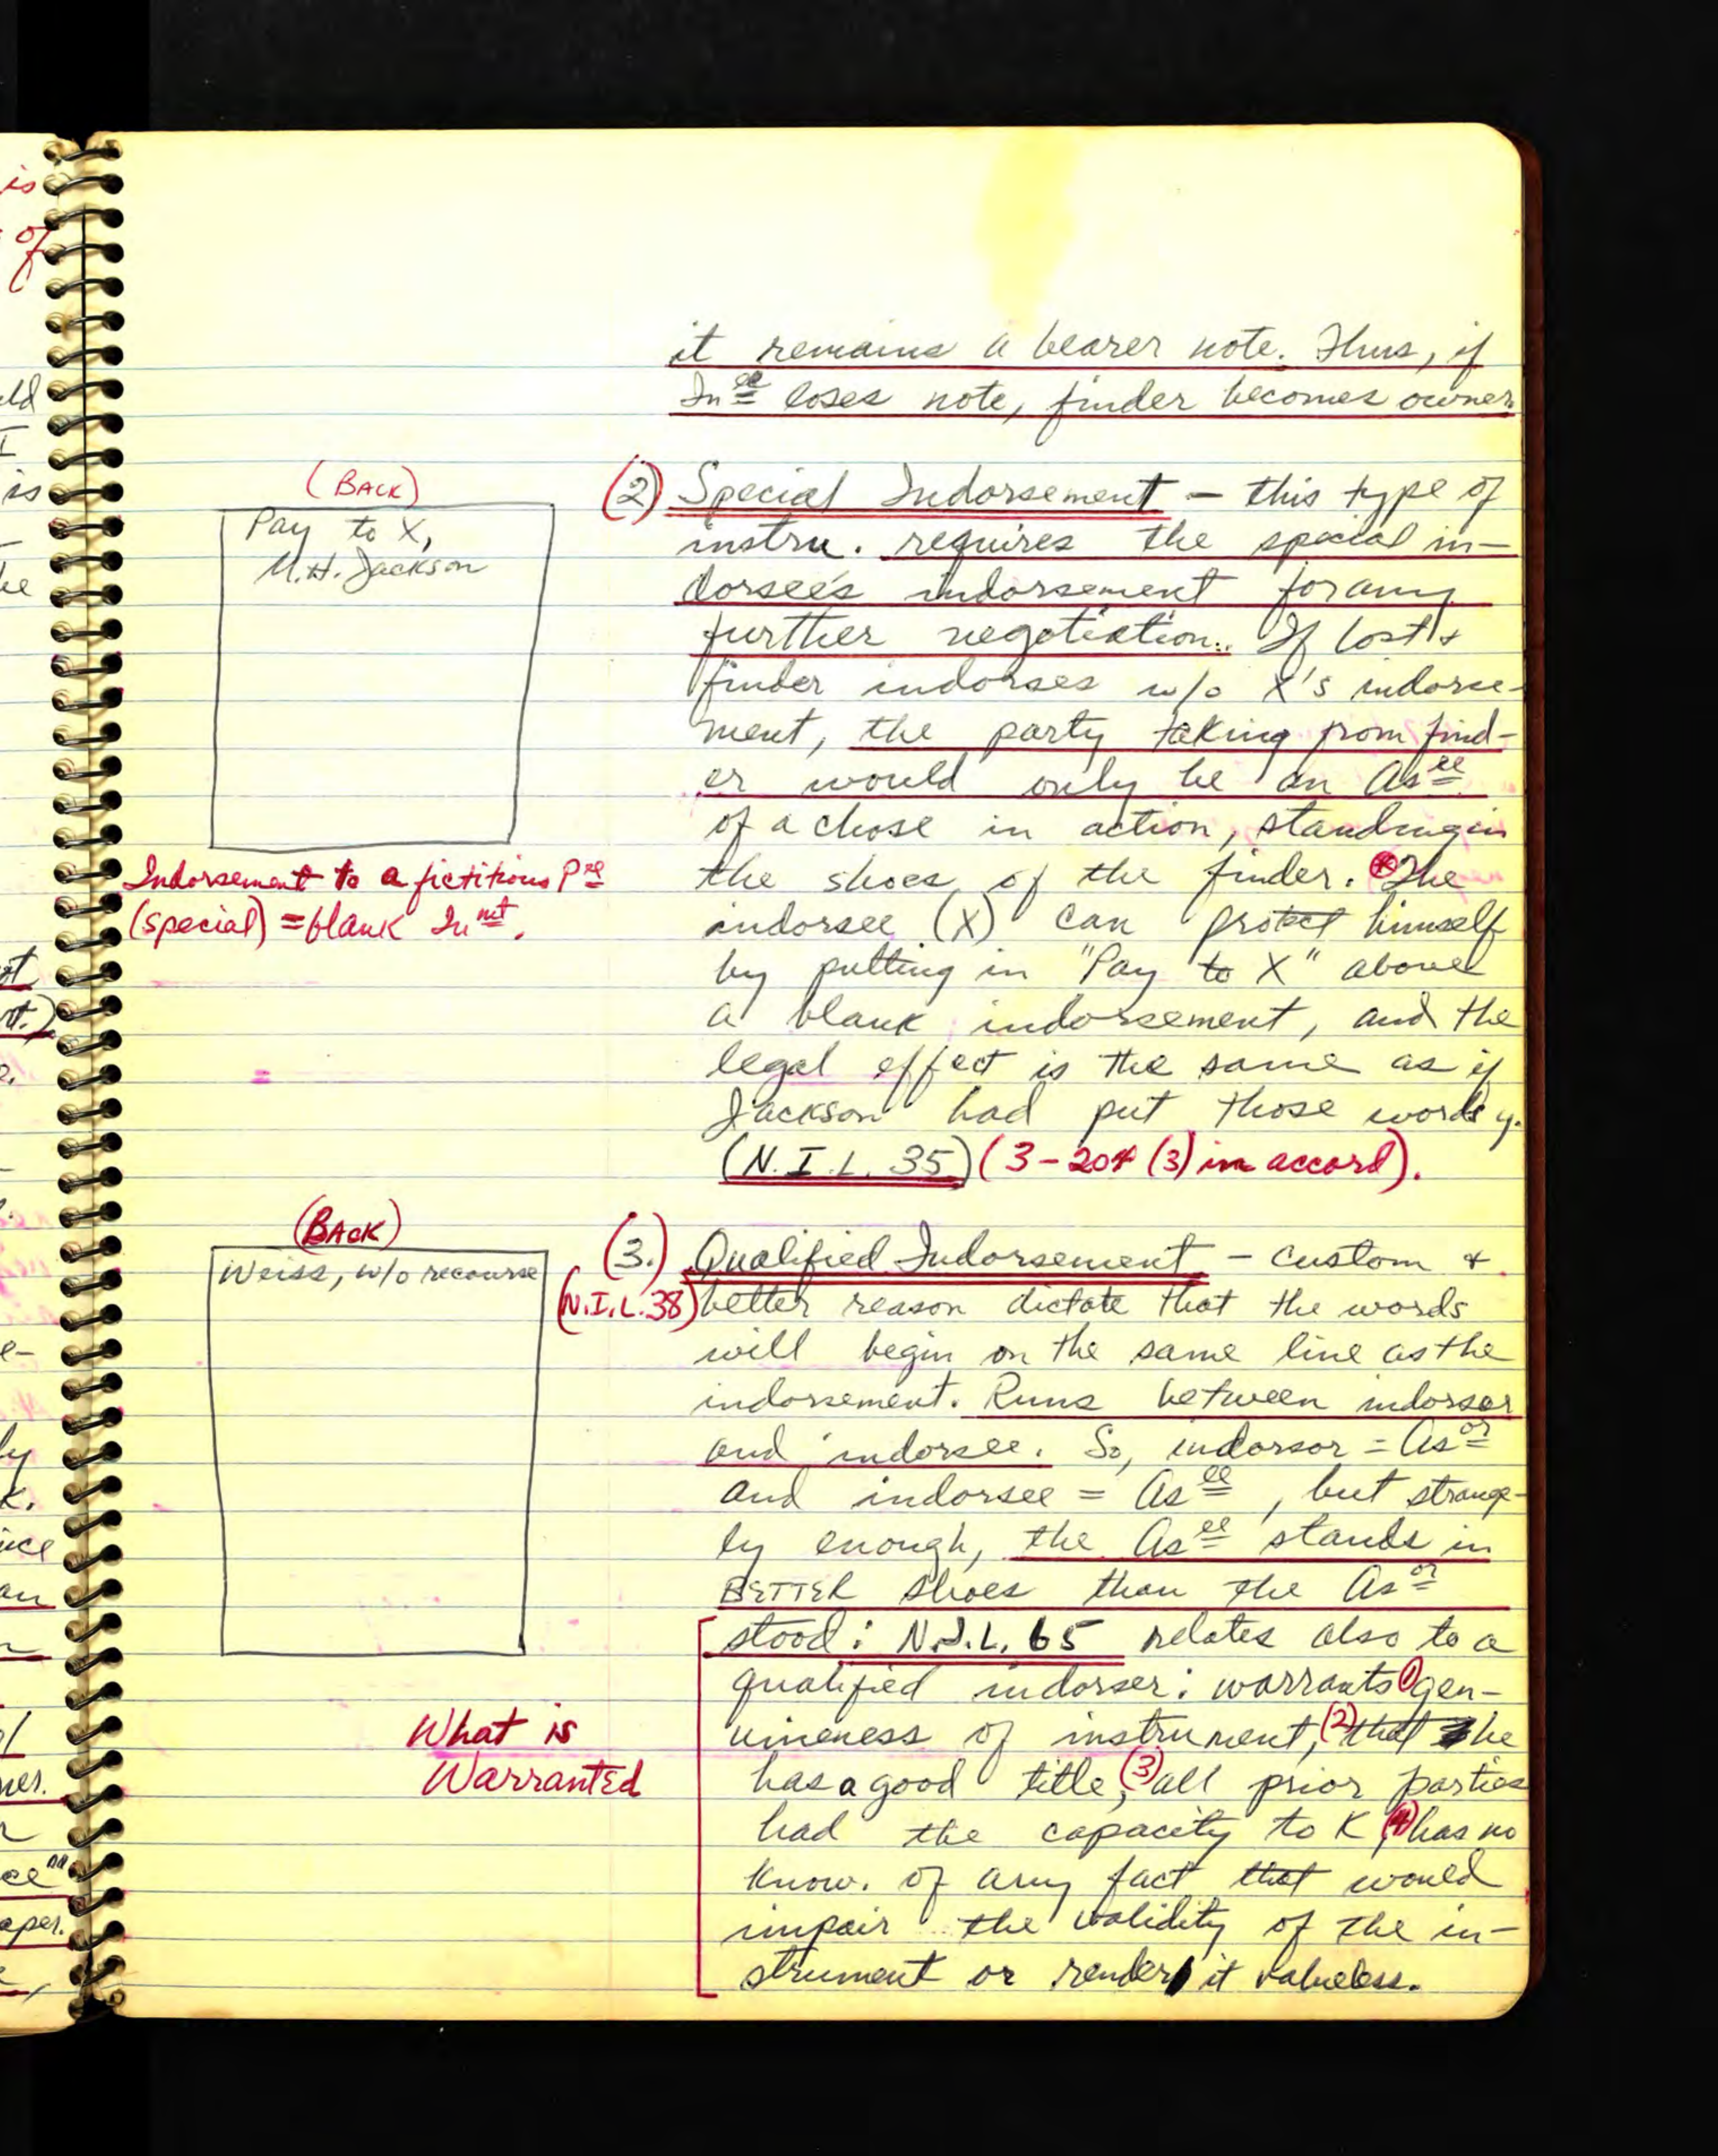 it remains a bearer note. Thus, if
In ee loses note, finder becomes owner.
(BACK)
Pay to X,
M.H. Jackson
Indorsement to a fictitious Pee
(special) = blank Inmt.
(2) Special Indorsement – this type of
instru. requires the special in-
dorsee's indorsement for any
further negotiation. If lost &
finder indorses w/o X's indorse-
ment, the party taking from find-
er would only be an Asee
of a chose in action, standing in
the shoes of the finder. * The
indorsee (X) can protect himself
by putting in "Pay to X" above
a blank indorsement, and the
legal effect is the same as if
Jackson had put those words
(N.I.L. 35) (3-204 (3) in accord).
(BACK)
Weiss, w/o recourse
(3.) Qualified Indorsement – custom &
(N.I.L. 38) better reason dictate that the words
will begin on the same line as the
indorsement. Runs between indorser
and indorsee. So, indorsor = Asor
and indorsee = Asee, but strange-
ly enough, the Asee stands in
BETTER shoes than the Asor
stood: N.I.L. 65 relates also to a
qualified indorser: warrants (1) gen-
uineness of instrument, (2) that he
has a good title, (3) all prior parties
had the capacity to K, (4) has no
know. of any fact that would
impair the validity of the in-
strument or render it valueless.
What is
Warranted
is
of